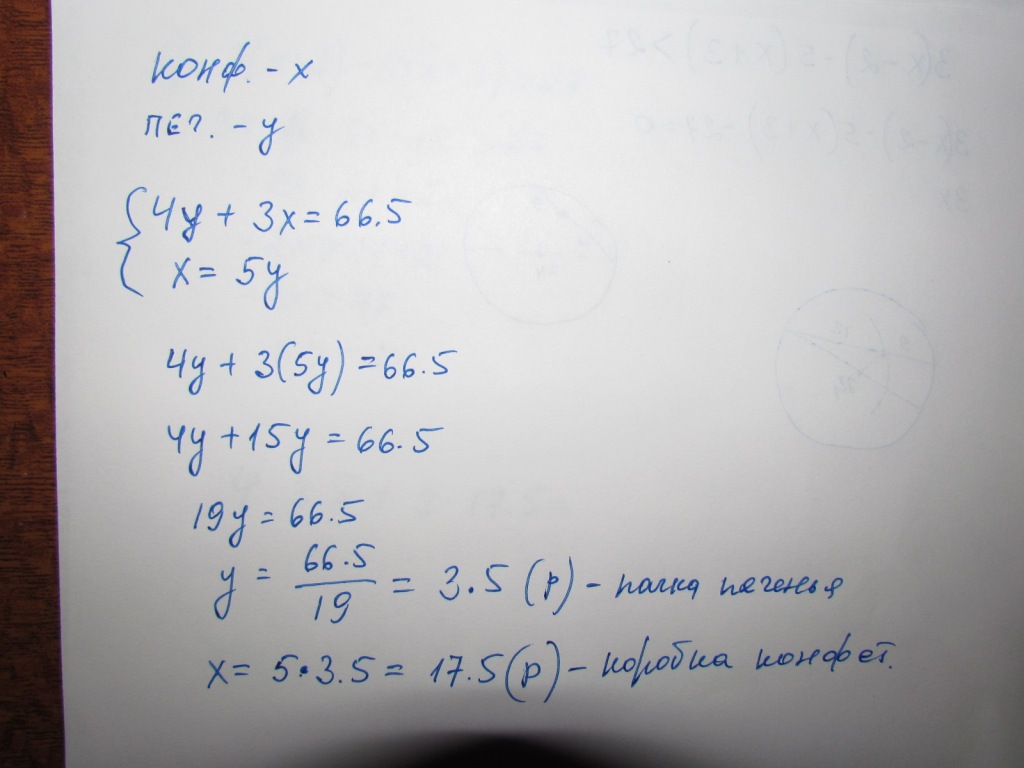 конф. - x
печ. - y
4y + 3x = 66.5
x = 5y
4y + 3(5y) = 66.5
4y + 15y = 66.5
19y = 66.5
y = 66.5/19 = 3.5 (р) - пачка печенья
x = 5·3.5 = 17.5 (р) - коробка конфет.